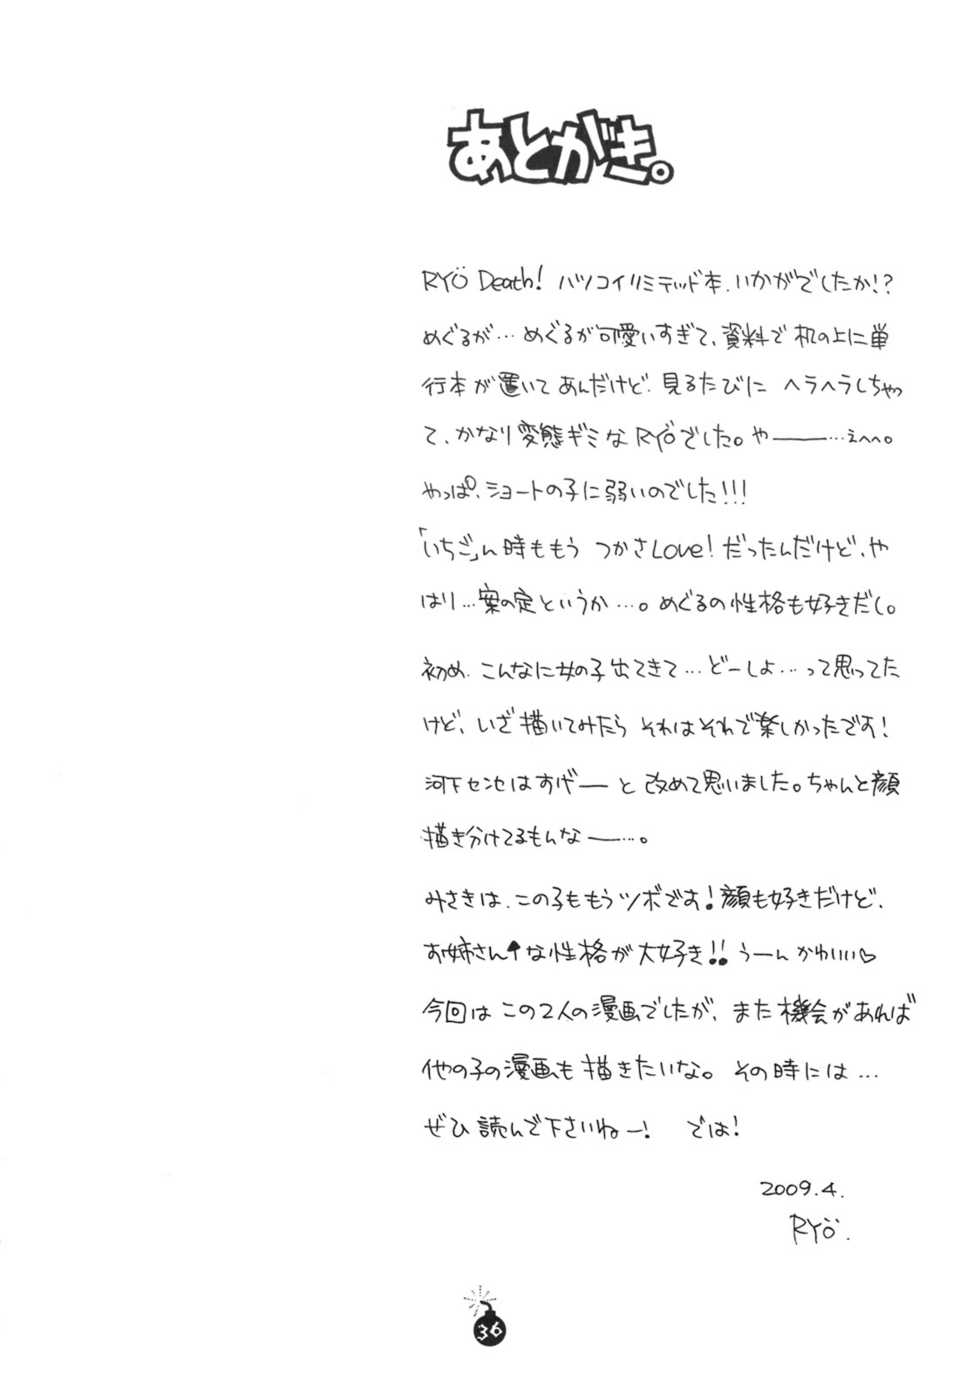 あとがき。
RYÖ Death! ハツコイリミテッド本、いかがでしたか!?
めぐるが…めぐるが可愛いすぎて、資料で机の上に単
行本が置いてあんだけど、見るたびに ヘラヘラしちゃっ
て、かなり変態ギミなRYÖでした。や――…えへへ。
やっぱ、ショートの子に弱いのでした!!!
「いちご」ん時ももう つかさLove!だったんだけど、や
はり…案の定というか…。めぐるの性格も好きだし。
初め、こんなに女の子出てきて…どーしよ…って思ってた
けど、いざ描いてみたら それはそれで楽しかったです!
河下センセはすげーと改めて思いました。ちゃんと顔
描き分けてるもんなー…。
みさきは、この子ももうツボです!顔も好きだけど、
お姉さん↑な性格が大好き!!うーん かわいい♡
今回は この2人の漫画でしたが、また機会があれば
他の子の漫画も描きたいな。その時には…
ぜひ読んで下さいねー! では!
2009.4.
RYÖ.
36